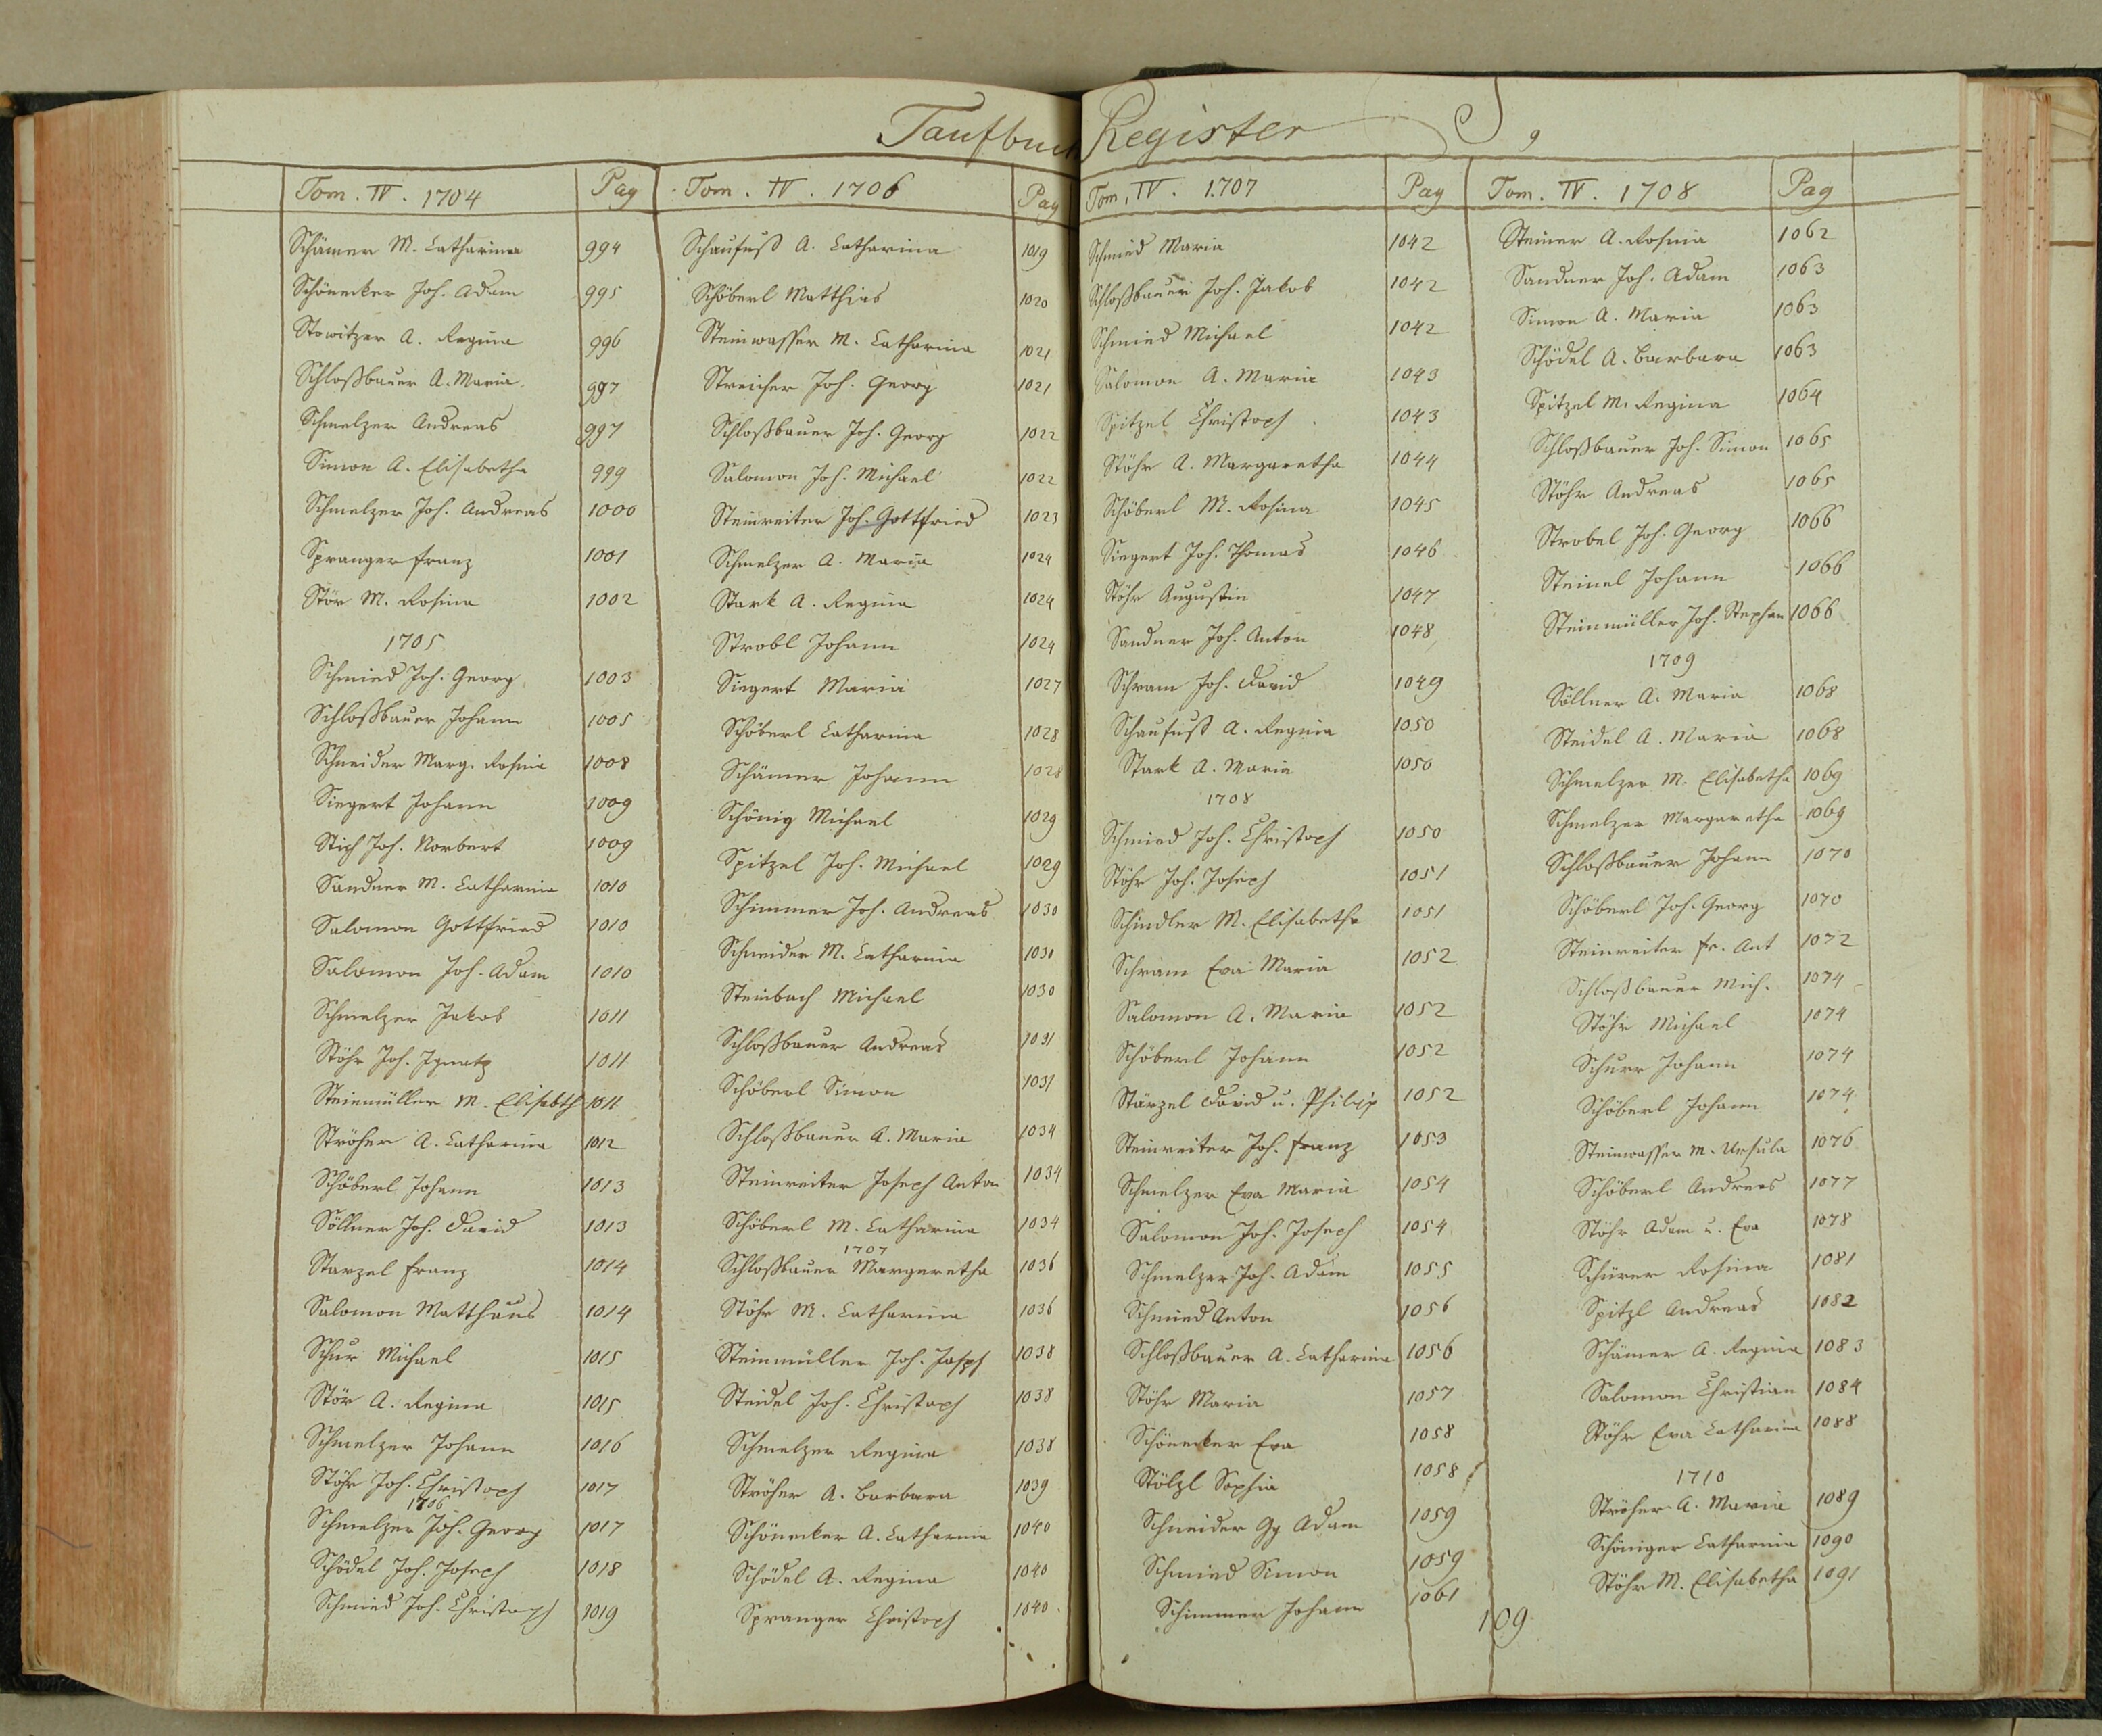 Taufbuch Register S,
Tom. IV. 1704 Pag
Schämer M. Catharina 994
Schönecker Joh. Adam 995
Stowitzer A. Regina 996
Schloßbauer A. Maria. 997
Schmelzer Andreas 997
Simon A. Elisabetha 999
Schmelzer Joh. Andreas 1000
Spranger Franz 1001
Stör M. Rosina 1002
1705
Schmied Joh. Georg 1003
Schloßbauer Johann 1005
Schneider Marg. Rosina 1008
Siegert Johann 1009
Stich Joh. Norbert 1009
Sandner M. Catharina 1010
Salomon Gottfried 1010
Salomon Joh. Adam 1010
Schmelzer Jakob 1011
Stöhr Joh. Ignatz 1011
Steinmüller M. Elisabth 1011
Ströher A. Catharina 1012
Schöberl Johann 1013
Söllner Joh. David 1013
Starzel Franz 1014
Salomon Matthäus 1014
Schur Michael 1015
Stör A. Regina 1015
Schmelzer Johann 1016
Stöhr Joh. Christoph 1017
1706
Schmelzer Joh. Georg 1017
Schödel Joh. Joseph 1018
Schmied Joh. Christoph 1019
Tom. IV. 1706 Pag
Schaufuß A. Catharina 1019
Schöberl Matthias 1020
Steinwasser M. Catharina 1021
Streicher Joh. Georg 1021
Schloßbauer Joh. Georg 1022
Salomon Joh. Michael 1022
Steinreiter Joh. Gottfried 1023
Schmelzer A. Maria 1024
Stark A. Regina 1024
Strobl Johann 1024
Siegert Maria 1027
Schöberl Catharina 1028
Schämer Johann 1028
Schönig Michael 1029
Spitzel Joh. Michael 1029
Schimmer Joh. Andreas 1030
Schneider M. Catharina 1030
Steinbach Michael 1030
Schloßbauer Andreas 1031
Schöberl Simon 1031
Schloßbauer A. Maria 1034
Steinreiter Joseph Anton 1034
Schöberl M. Catharina 1034
1707
Schloßbauer Margaretha 1036
Stöhr M. Catharina 1036
Steinmüller Joh. Josph 1038
Steidel Joh. Christoph 1038
Schmelzer Regina 1038
Ströher A. Barbara 1039
Schönecker A. Catharina 1040
Schödel A. Regina 1040
Spranger Christoph 1040
Tom. IV. 1707 Pag
Schmied Maria 1042
Schloßbauer Joh. Jakob 1042
Schmied Michael 1042
Salomon A. Maria 1043
Spitzel Christoph 1043
Stöhr A. Margaretha 1044
Schöberl M. Rosina 1045
Siegert Joh. Thomas 1046
Stöhr Augustin 1047
Sandner Joh. Anton 1048
Schram Joh. David 1049
Schaufuß A. Regina 1050
Stark A. Maria 1050
1708
Schmied Joh. Christoph 1050
Stöhr Joh. Joseph 1051
Schindler M. Elisabetha 1051
Schram Eva Maria 1052
Salomon A. Maria 1052
Schöberl Johann 1052
Stärzel David u. Philipp 1052
Steinreiter Joh. Franz 1053
Schmelzer Eva Maria 1054
Salomon Joh. Joseph 1054
Schmelzer Joh. Adam 1055
Schmied Anton 1056
Schloßbauer A. Catharina 1056
Stöhr Maria 1057
Schönecker Eva 1058
Stölzl Sophia 1058
Schneider Gg Adam 1059
Schmied Simon 1059
Schimmer Johann 1061
Tom. IV. 1708 Pag
Steiner A. Rosina 1062
Sandner Joh. Adam 1063
Simon A. Maria 1063
Schödel A. Barbara 1063
Spitzel M. Regina 1064
Schloßbauer Joh. Simon 1065
Stöhr Andreas 1065
Strobel Joh. Georg 1066
Steinel Johann 1066
Steinmüller Joh. Stephan 1066
1709
Söllner A. Maria 1068
Steidel A. Maria 1068
Schmelzer M. Elisabetha 1069
Schmelzer Margaretha 1069
Schloßbauer Johann 1070
Schöberl Joh. Georg 1070
Steinreiter Fr. Ant 1072
Schloßbauer Mich. 1074
Stöhr Michael 1074
Schurr Johann 1074
Schöberl Johann 1074
Steinwasser M. Ursula 1076
Schöberl Andreas 1077
Stöhr Adam u. Eva 1078
Schürer Rosina 1081
Spitzl Andreas 1082
Schämer A. Regina 1083
Salomon Christian 1084
Stöhr Eva Catharina 1088
1710
Ströher A. Maria 1089
Schöniger Catharina 1090
Stöhr M. Elisabetha 1091
109